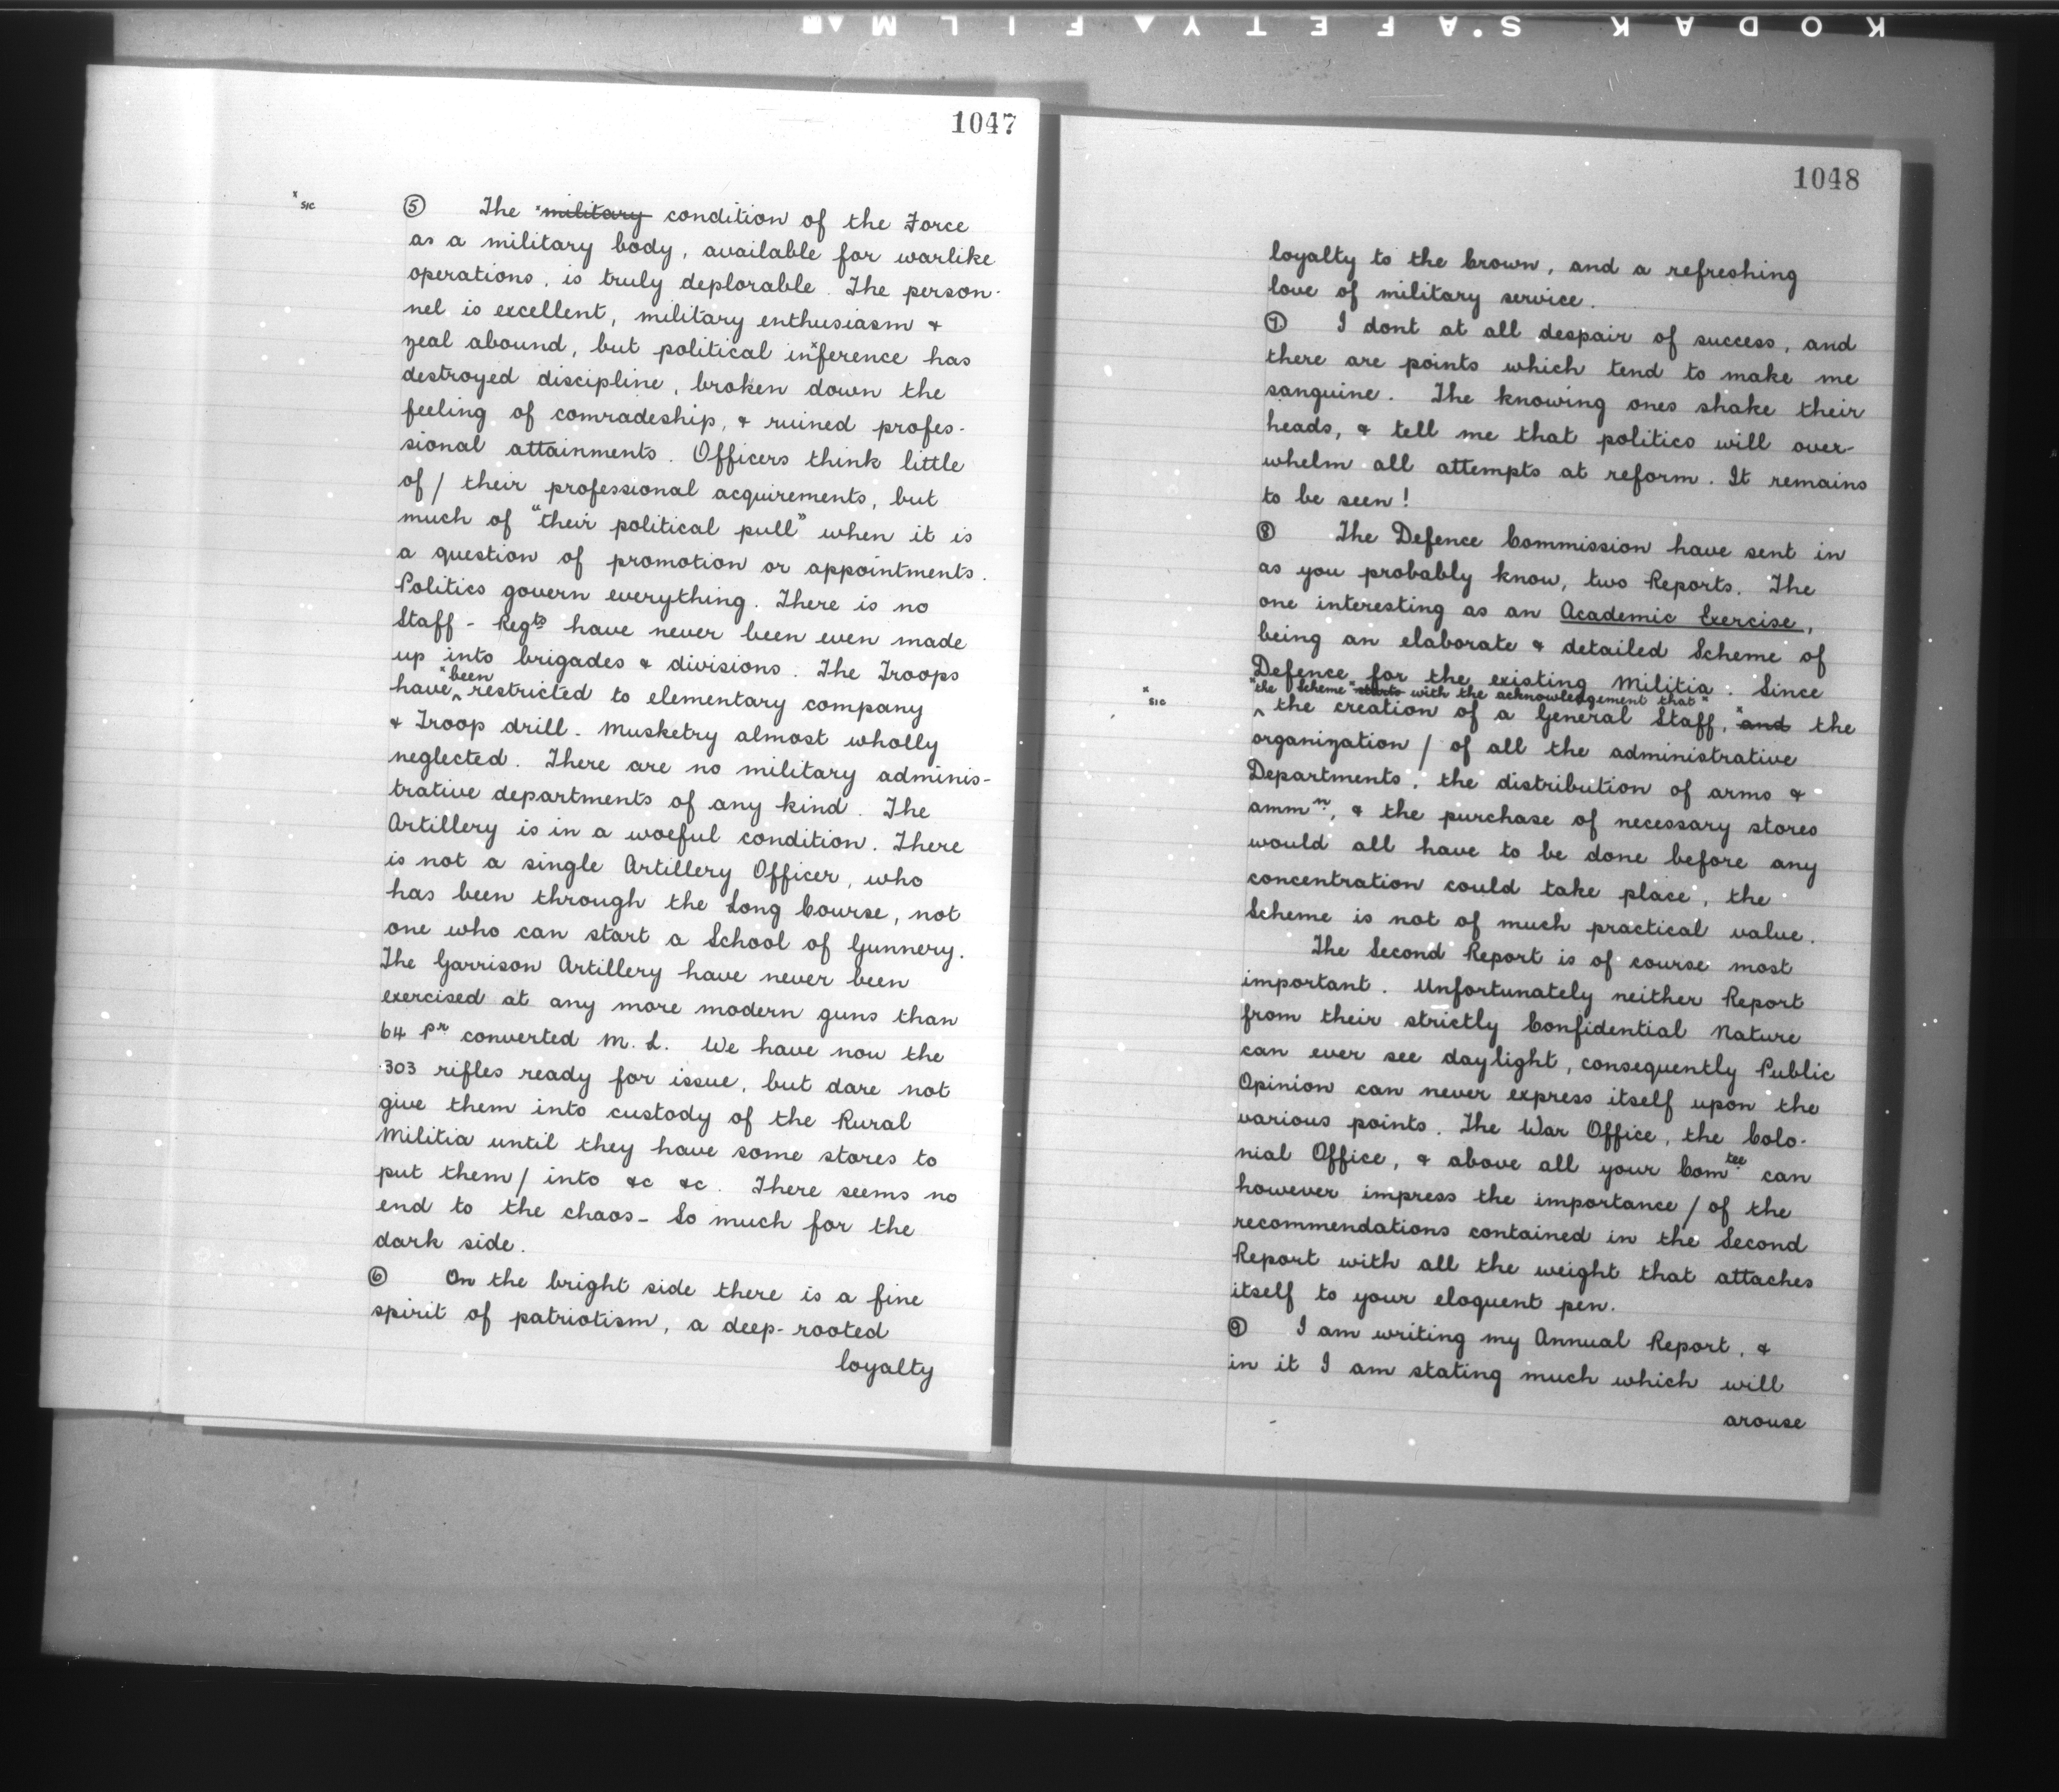 KODAK S'AFETY▲FILM▲■
1047
x sic
⑤ The ˣ~~military~~ condition of the Force
as a military body, available for warlike
operations, is truly deplorable. The person-
nel is excellent, military enthusiasm &
zeal abound, but political inˣference has
destroyed discipline, broken down the
feeling of comradeship, & ruined profes-
sional attainments. Officers think little
of / their professional acquirements, but
much of "their political pull" when it is
a question of promotion or appointments.
Politics govern everything. There is no
Staff - Regts have never been even made
up into brigades & divisions. The Troops
ˣbeen
have ^ restricted to elementary company
& Troop drill - Musketry almost wholly
neglected. There are no military adminis-
trative departments of any kind. The
Artillery is in a woeful condition. There
is not a single Artillery Officer, who
has been through the Long Course, not
one who can start a School of Gunnery.
The Garrison Artillery have never been
exercised at any more modern guns than
64 pr converted M. L. We have now the
.303 rifles ready for issue, but dare not
give them into custody of the Rural
Militia until they have some stores to
put them / into &c &c. There seems no
end to the chaos - So much for the
dark side.
⑥ On the bright side there is a fine
spirit of patriotism, a deep-rooted
loyalty
1048
loyalty to the Crown, and a refreshing
love of military service.
⑦ I dont at all despair of success, and
there are points which tend to make me
sanguine. The knowing ones shake their
heads, & tell me that politics will over-
whelm all attempts at reform. It remains
to be seen!
⑧ The Defence Commission have sent in
as you probably know, two Reports. The
one interesting as an Academic Exercise,
being an elaborate & detailed Scheme of
Defence for the existing Militia. Since
x sic
"the Scheme ˣ~~starts~~ with the acknowledgement that"
^ the creation of a General Staff, ˣ~~and~~ the
organization / of all the administrative
Departments, the distribution of arms &
ammn, & the purchase of necessary stores
would all have to be done before any
concentration could take place, the
Scheme is not of much practical value.
The Second Report is of course most
important. Unfortunately neither Report
from their strictly Confidential Nature
can ever see daylight, consequently Public
Opinion can never express itself upon the
various points. The War Office, the Colo-
nial Office, & above all your Comtee can
however impress the importance / of the
recommendations contained in the Second
Report with all the weight that attaches
itself to your eloquent pen.
⑨ I am writing my Annual Report, &
in it I am stating much which will
arouse